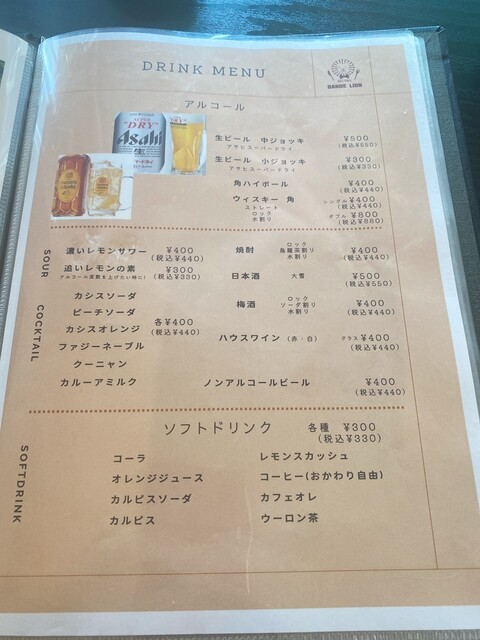 DRINK MENU
DANDE LION
アルコール
SUPER "DRY"
Asahi
生
生ビール 中ジョッキ ¥500
アサヒスーパードライ (税込¥550)
生ビール 小ジョッキ ¥300
アサヒスーパードライ (税込¥350)
角ハイボール ¥400
(税込¥440)
ウィスキー 角 シングル ¥400
ストレート (税込¥440)
ロック ダブル ¥800
水割り (税込¥880)
SOUR COCKTAIL
濃いレモンサワー ¥400
(税込¥440)
追いレモンの素 ¥300
アルコール度数を上げたい時に! (税込¥330)
カシスソーダ
ピーチソーダ
カシスオレンジ
ファジーネーブル
クーニャン
カルーアミルク
各¥400
(税込¥440)
焼酎 ロック ¥400
烏龍茶割り (税込¥440)
水割り
日本酒 大雪 ¥500
(税込¥550)
梅酒 ロック ¥400
ソーダ割り (税込¥440)
水割り
ハウスワイン (赤・白) グラス ¥400
(税込¥440)
ノンアルコールビール ¥400
(税込¥440)
SOFTDRINK
ソフトドリンク 各種 ¥300
(税込¥330)
コーラ
オレンジジュース
カルピスソーダ
カルピス
レモンスカッシュ
コーヒー(おかわり自由)
カフェオレ
ウーロン茶